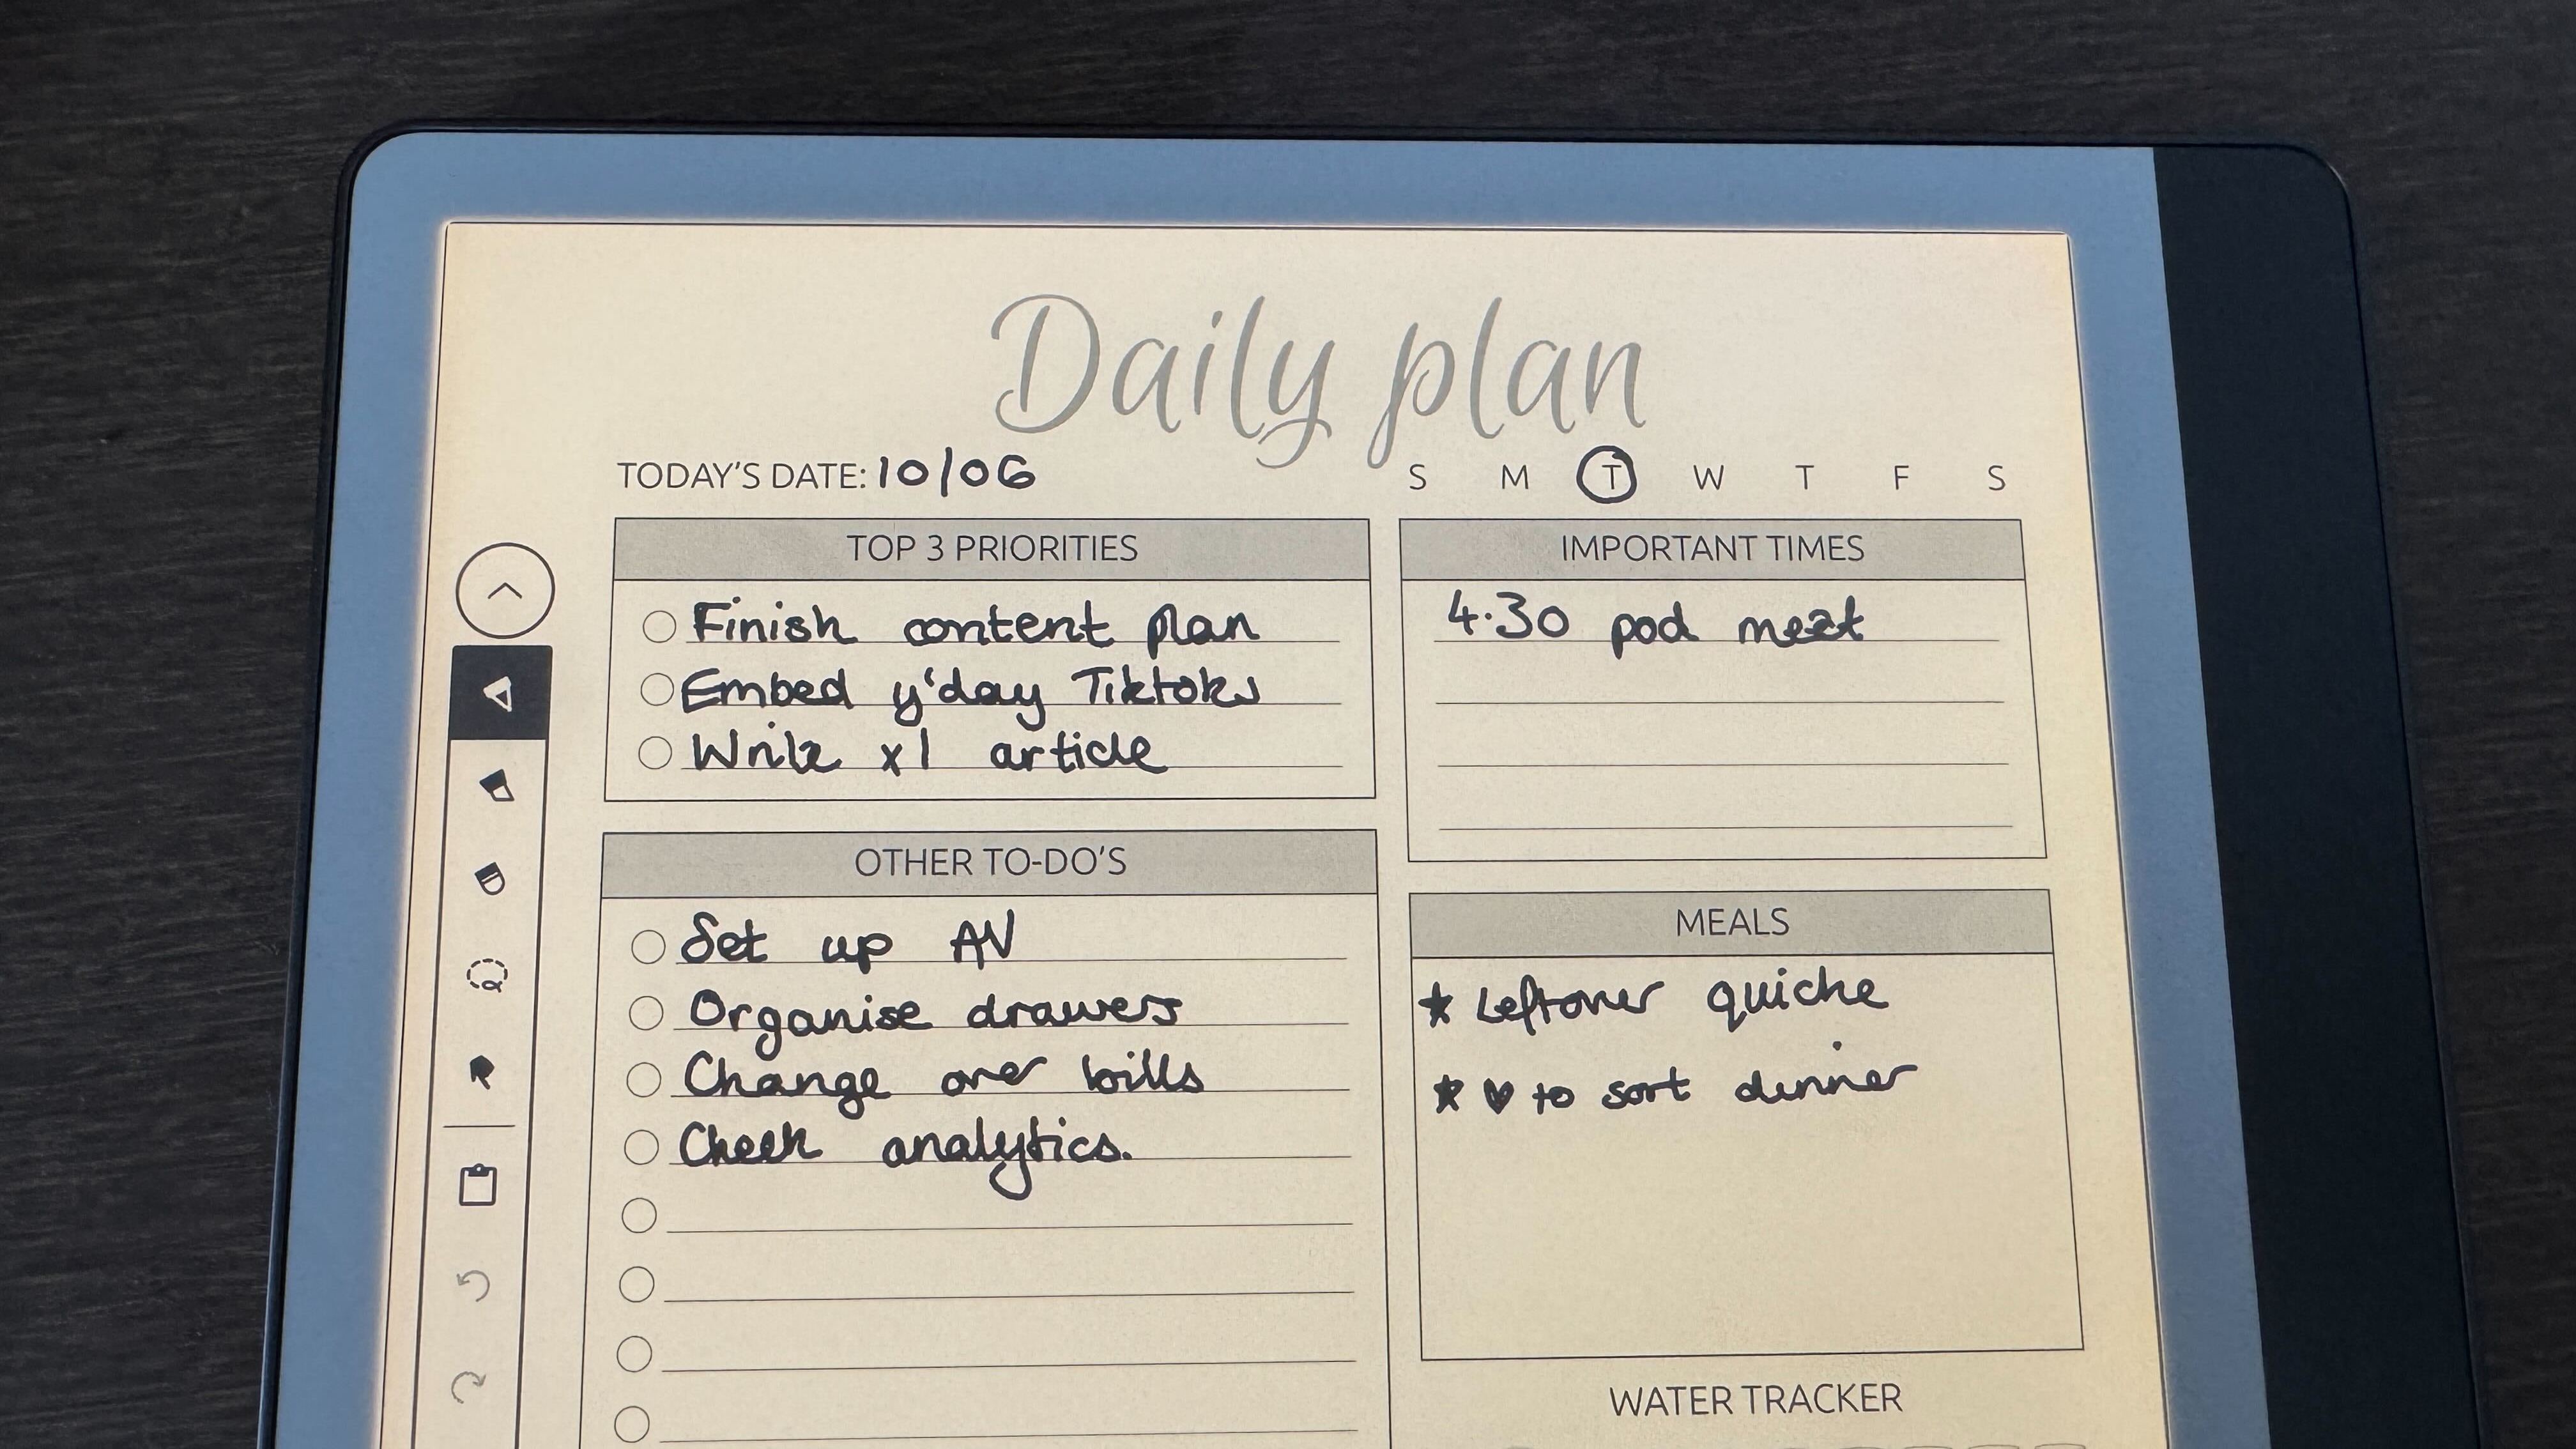 Daily plan
TODAY'S DATE: 10/06
S M T W T F S
TOP 3 PRIORITIES
Finish content plan
Embed y'day Tiktoks
Write x1 article
OTHER TO-DO'S
Set up AV
Organise drawers
Change over bills
Check analytics.
IMPORTANT TIMES
4.30 pod meet
MEALS
★ Leftover quiche
★ ♥ to sort dinner
WATER TRACKER